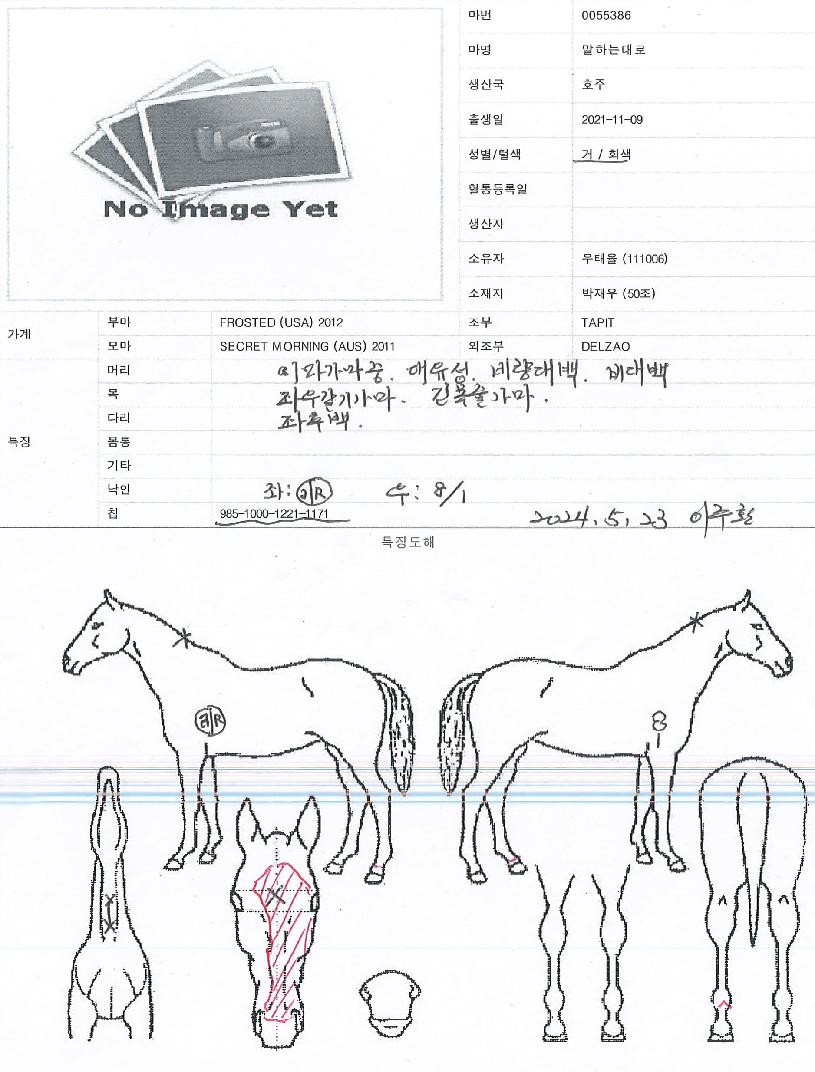 No Image Yet
마번 0055386
마명 말하는대로
생산국 호주
출생일 2021-11-09
성별/털색 거 / 회색
혈통등록일
생산자
소유자 우태율 (111006)
소재지 박재우 (50조)
가계 부마 FROSTED (USA) 2012 조부 TAPIT
모마 SECRET MORNING (AUS) 2011 외조부 DELZAO
특징 머리 이마가마중. 대유성. 비량대백. 비대백
목 좌우갈기가마. 긴목줄가마.
다리 좌후백.
몸통
기타
낙인 좌: R 우: 8/1
칩 985-1000-1221-1171
2024. 5. 23
특징도해
R
8
1